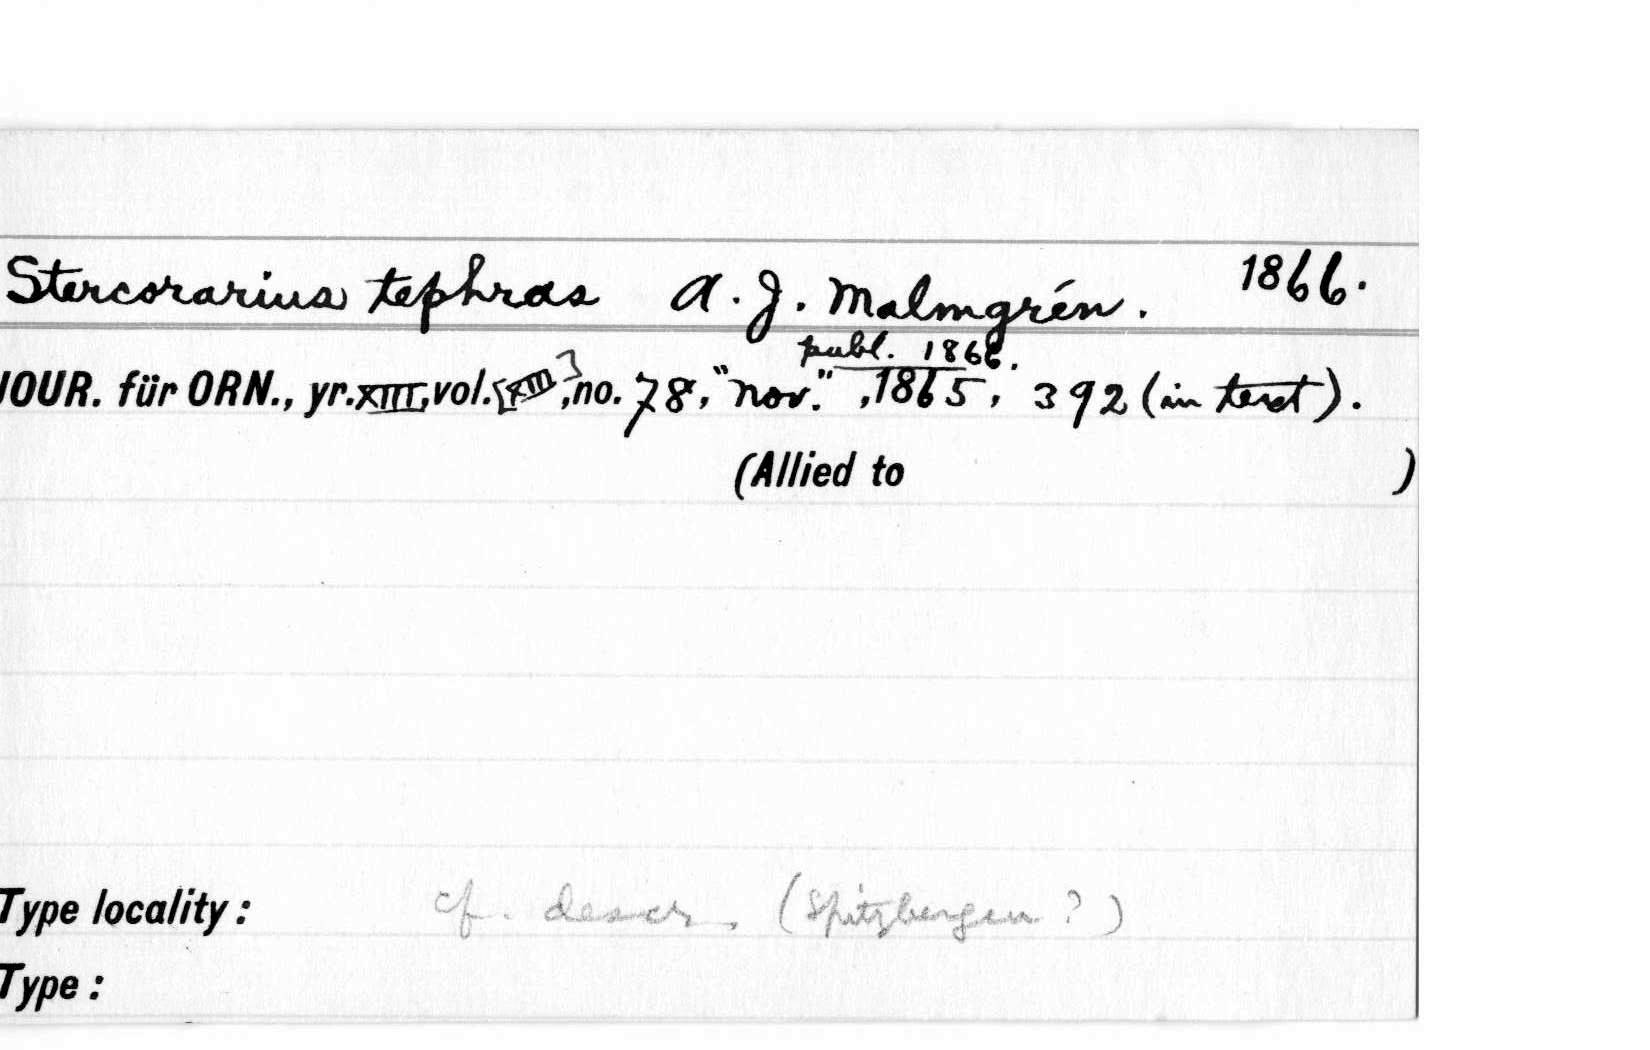 Stercorarius tephras A. J. Malmgrén. 1866.
publ. 1866.
JOUR. für ORN., yr. XIII, vol. [XIII], no. 78, "Nov.", 1865, 392 (in text).
(Allied to )
Type locality: cf. descr. (Spitzbergen?)
Type: